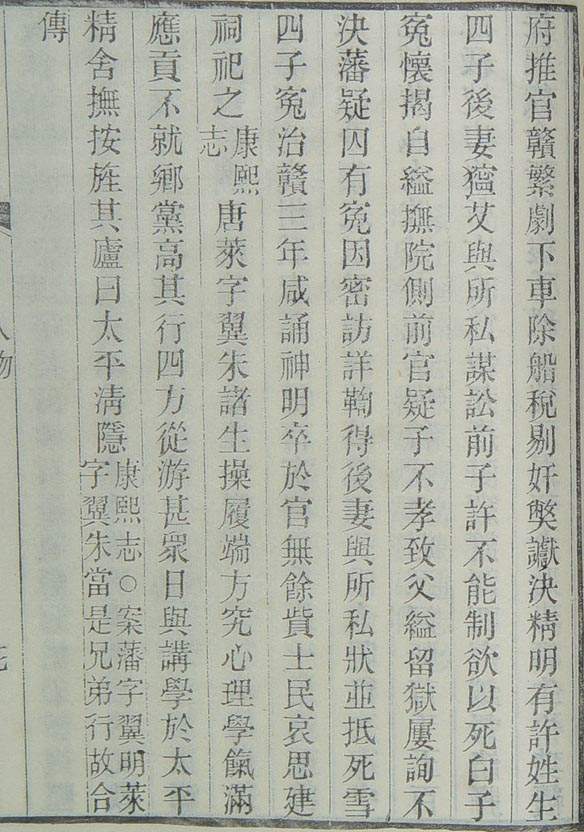 府推官贛繁劇下車除船稅剔奸獘讞決精明有許姓生
四子後妻獧艾與所私謀訟前子許不能制欲以死白子
寃懷揭自縊撫院側前官疑子不孝致父縊留獄屢詢不
決藩疑囚有寃因密訪詳鞫得後妻與所私狀並抵死雪
四子寃治贛三年咸誦神明卒於官無餘貲士民哀思建
祠祀之康熙志唐萊字翼朱諸生操履端方究心理學餼滿
應貢不就鄉黨高其行四方從游甚眾日與講學於太平
精舍撫按旌其廬曰太平清隱康熙志○案藩字翼明萊字翼朱當是兄弟行故合
傳
人物